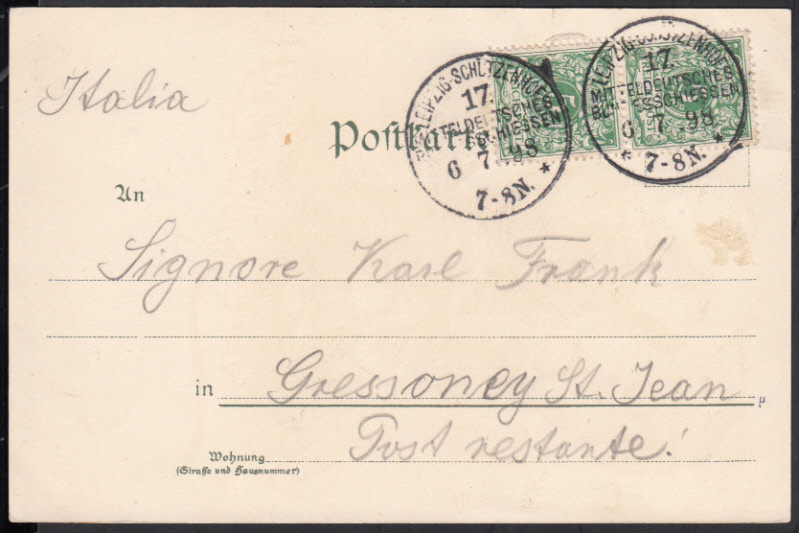 Italia
Postkarte
LEIPZIG-SCHÜTZENHOF
17.
MITTELDEUTSCHES
BUNDESSCHIESSEN
6 7 98
* 7-8N. *
LEIPZIG-SCHÜTZENHOF
17.
MITTELDEUTSCHES
BUNDESSCHIESSEN
6 7 98
* 7-8N. *
An
Signore Karl Frank
in Gressoney St. Jean
Post restante!
Wohnung
(Straße und Hausnummer)